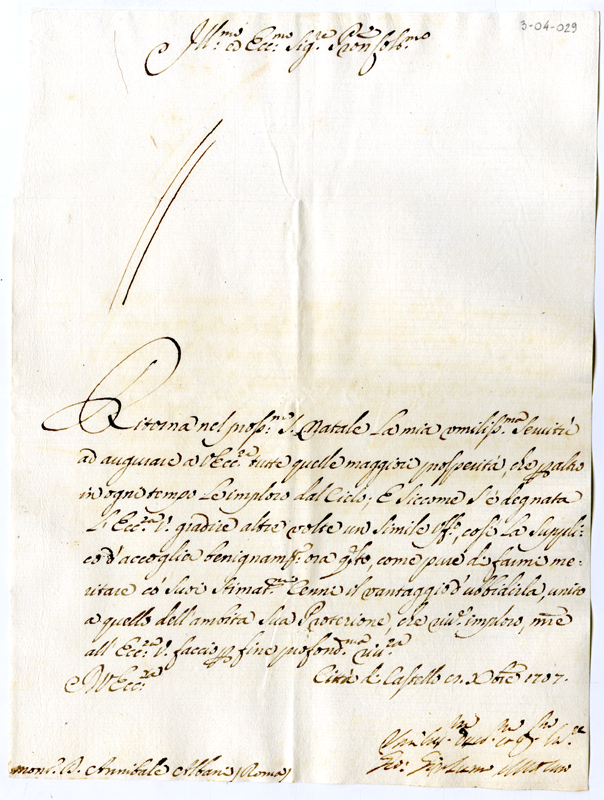 3-04-029
Ill.mo ed Ecc.mo Sig.re P.ron Col.mo
Ritorna nel pross.mo S. Natale la mia umiliss.ma Servitù
ad augurare a V. Ecc.za tutte quelle maggiori prosperità, che p altro
in ogni tempo Le imploro dal Cielo; E siccome s'è degnata
l'Ecc.za V. gradire altre volte un simile Uff.o, così La suppli-
co d'accoglia benignam.te ora q.sto, come pure di farmi me-
ritare co' suoi stimat.mi Cenni il vantaggio d'ubbidirla, unito
a quello dell'ambita Sua Protezione, che viv.e imploro, m̃re
all'Ecc.za V. faccio p fine profond.ma riv.za
Di V. Ecc.za
Città di Castello 1707.
Mons.r D. Annibale Albani (Roma)